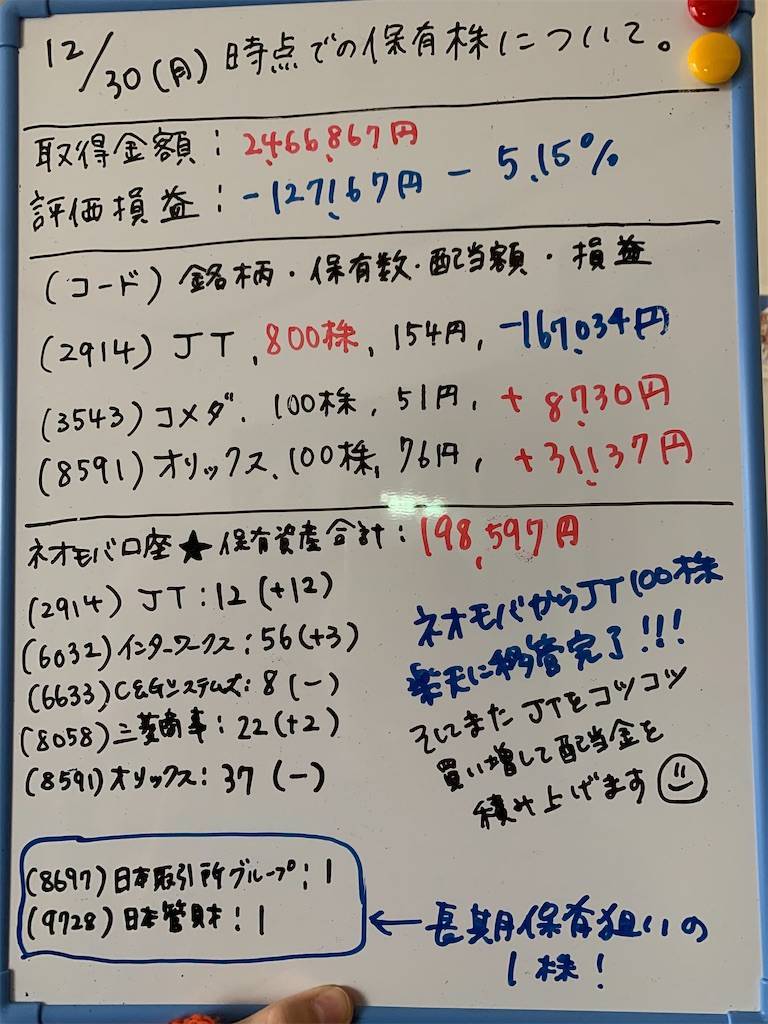 12/30(月)時点での保有株について。
取得金額：2,466,867円
評価損益：-127,167円 - 5.15%
(コード)銘柄・保有数・配当額・損益
(2914)JT、800株、154円、-167,034円
(3543)コメダ、100株、51円、+8,730円
(8591)オリックス、100株、76円、+31,137円
ネオモバ口座★保有資産合計：198,597円
(2914)JT：12(+12)
(6032)インターワークス：56(+3)
(6633)C&Gシステムズ：8(-)
(8058)三菱商事：22(+2)
(8591)オリックス：37(-)
ネオモバからJT100株
楽天に移管完了!!!
そしてまたJTをコツコツ
買い増して配当金を
積み上げます
(8697)日本取引所グループ：1
(9728)日本管財：1
←長期保有狙いの
1株!